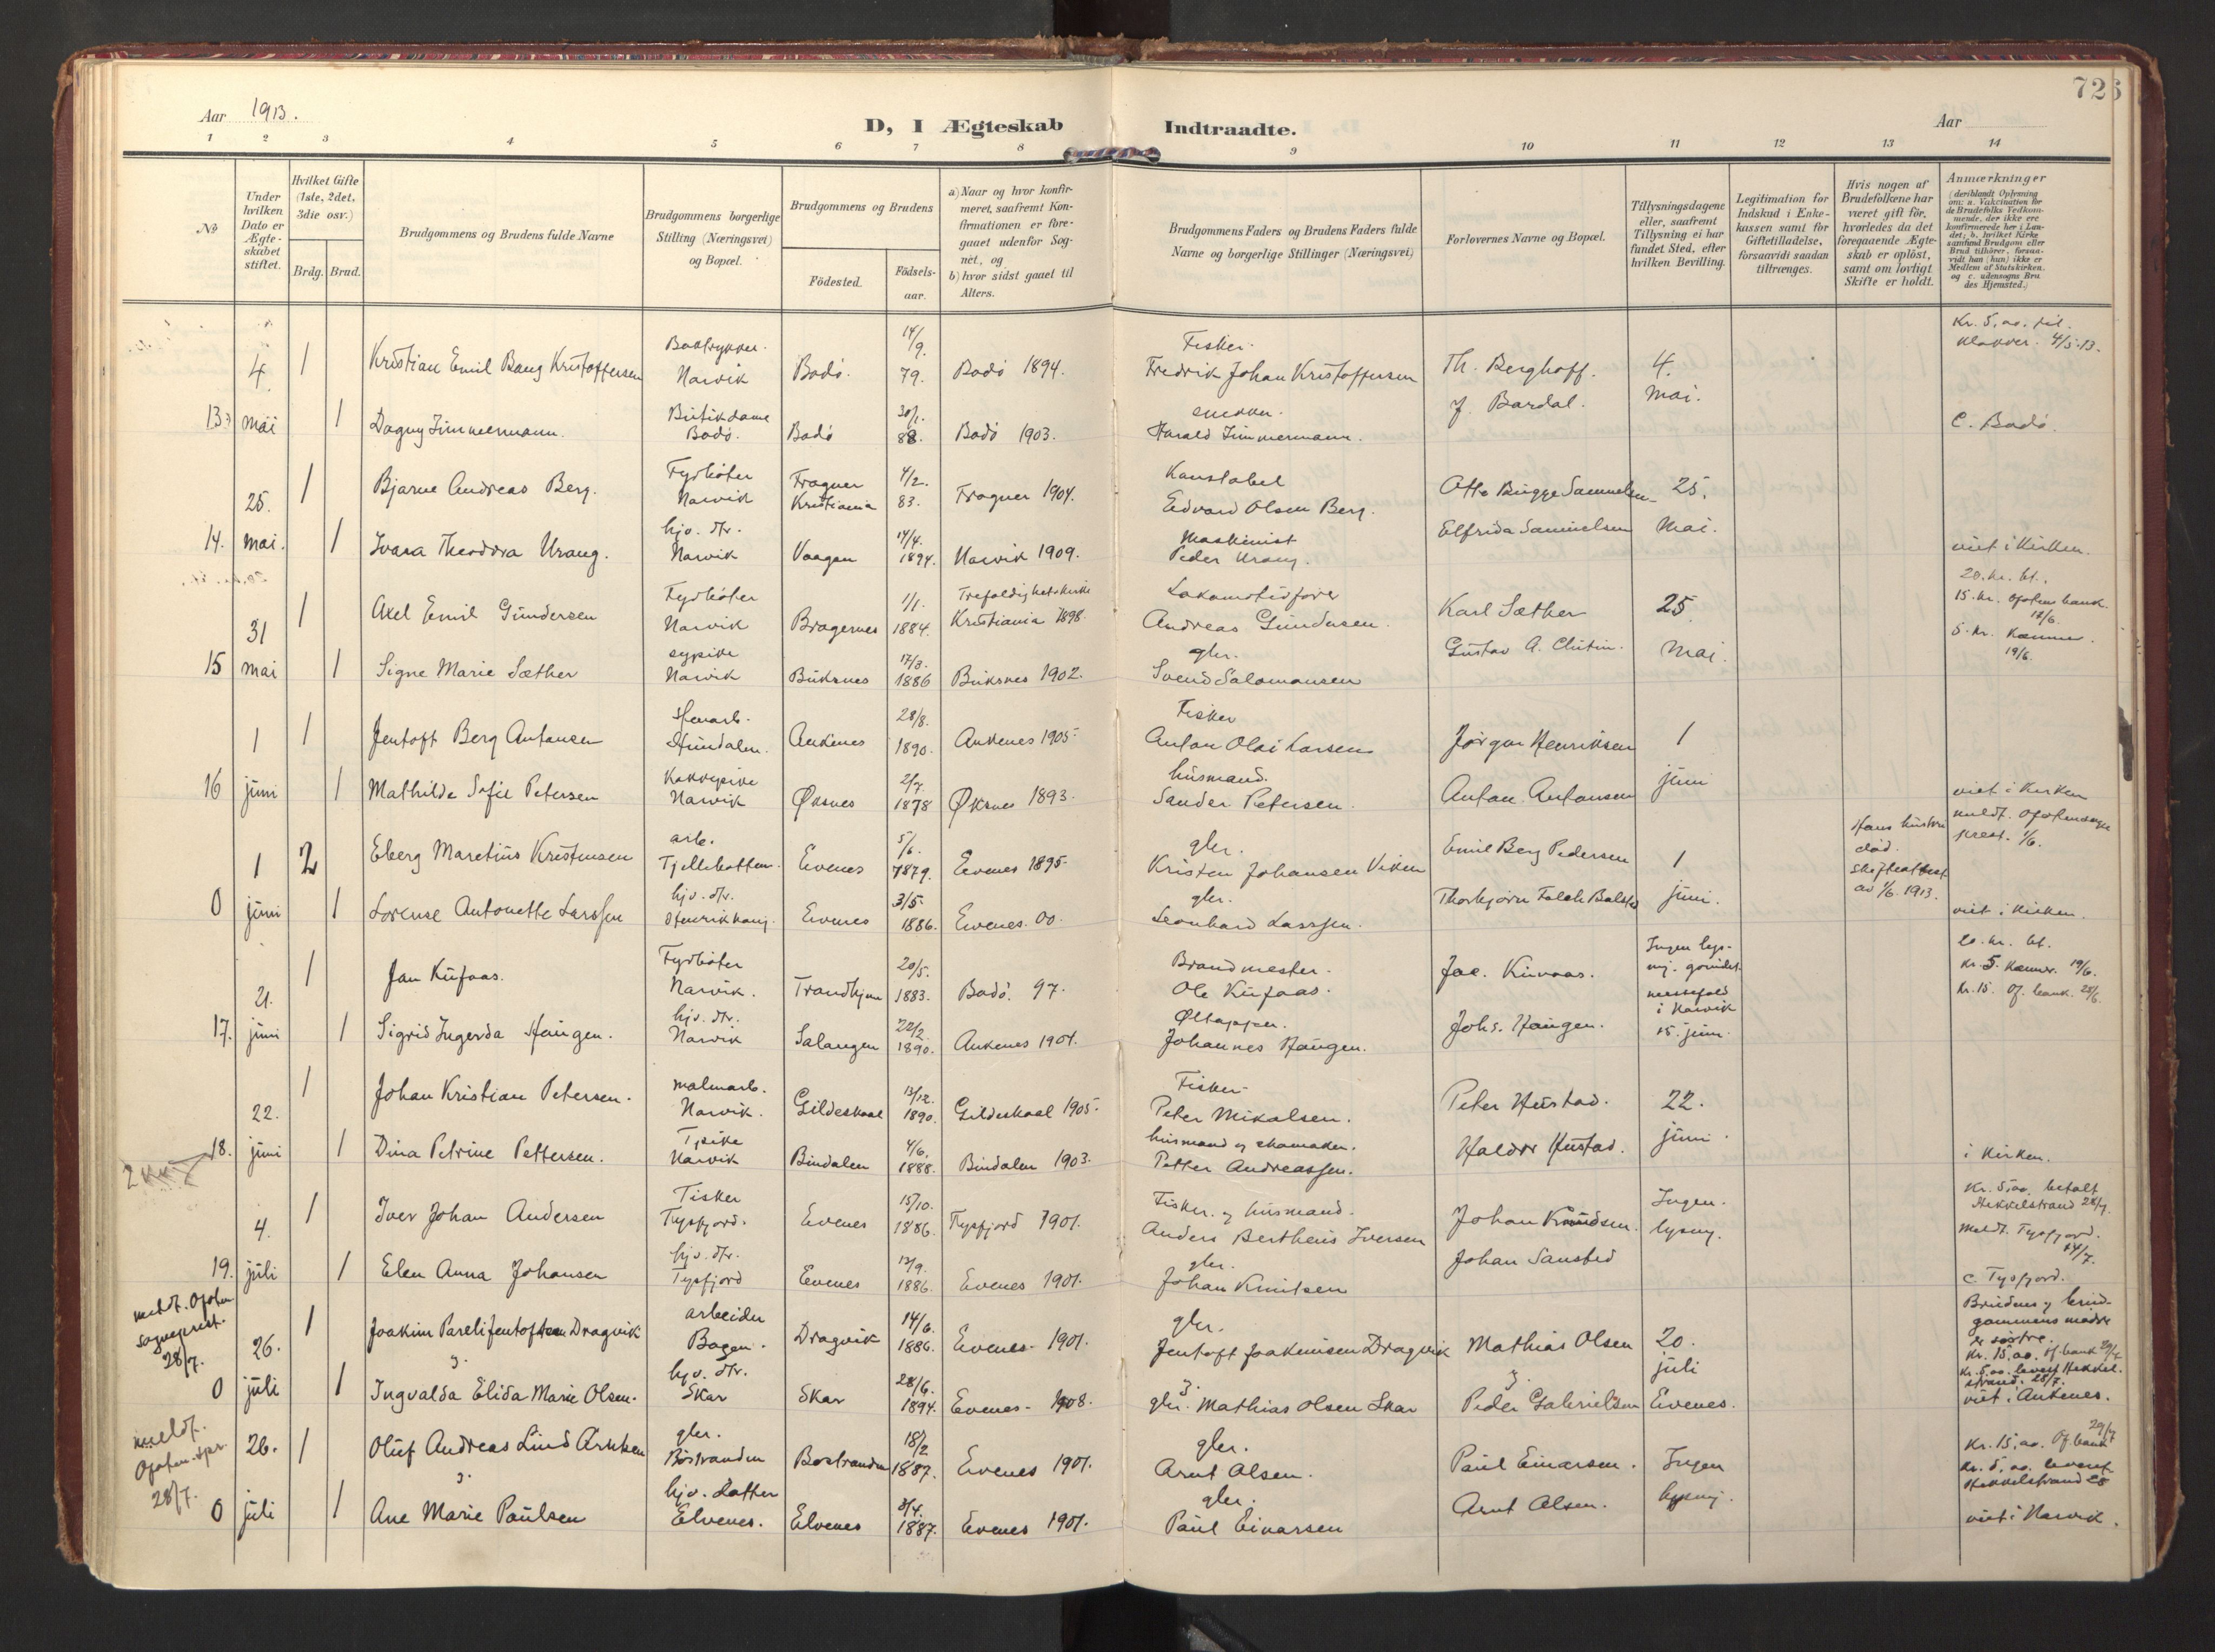 726
Aar 1913.
D, I Ægteskab Indtraadte.
Aar
1 2 3 4 5 6 7 8 9 10 11 12 13 14
№
Under hvilken Dato er Ægteskabet stiftet.
Hvilket Gifte (1ste, 2det, 3die osv.)
Brdg. Brud.
Brudgommens og Brudens fulde Navne
Brudgommens borgerlige Stilling (Næringsvei) og Bopæl.
Brudgommens og Brudens
Fødested.
Fødsels-aar.
a) Naar og hvor konfir-meret, saafremt Kon-firmationen er fore-gaaet udenfor Sog-net, og
b) hvor sidst gaaet til Alters.
Brudgommens Faders og Brudens Faders fulde Navne og borgerlige Stillinger (Næringsvei)
Forlovernes Navne og Bopæl.
Tillysningsdagene eller, saafremt Tillysning ei har fundet Sted, efter hvilken Bevilling.
Legitimation for Indskud i Enke-kassen samt for Giftetilladelse, forsaavidt saadan tiltrænges.
Hvis nogen af Brudefolkene har været gift før, hvorledes da det foregaaende Ægte-skab er opløst, samt om lovligt Skifte er holdt.
Anmærkninger
(deriblandt Oplysning om: a. Vakcination for de Brudefolks Vedkom-mende, der ikke ere konfirmerede her i Lan-det; b. hvilket Kirke-samfund Brudgom eller Brud tilhører, forsaa-vidt han (hun) ikke er Medlem af Statskirken, og c. udensogns Bru-des Hjemsted.)
4. 1 Kristian Emil Bang Kristoffersen Boktrykker. Narvik Bodø. 14/9. 79. Bodø 1894. Fisker. Fredrik Johan Kristoffersen Th. Berghoff. 4. Kr. 5,00 til klokker. 4/5.13.
13. mai 1 Dagny Zimmermann. Butikdame Bodø. Bodø 30/1. 88. Bodø 1903. snekker. Harald Zimmermann. J. Bardal. mai. C. Bodø.
25. 1 Bjarne Andreas Berg. Fyrbøter Narvik Frogner Kristiania 4/2. 83. Frogner 1904. Konstabel Edvard Olsen Berg. Otto Bugge Samuelsen 25.
14. mai. 1 Ivara Theodora Urang. hjv. dtr. Narvik Vaagan 14/4. 1894. Narvik 1909. Maskinist Peder Urang. Elfrida Samuelsen mai. viet i Kirken.
31 1 Axel Emil Gundersen Fyrbøter Narvik Bragernes 1/1. 1884. Trefoldighetskirke Kristiania 1898. Lokomotivfører Andreas Gundersen. Karl Sæther 25. 20. kr. bt. 15. kr. Ofoten bank. 18/6.
15 mai 1 Signe Marie Sæther sypike Narvik Buksnes 17/3. 1886 Buksnes 1902. gbr. Svend Salomonsen Gustav A. mai. 5. kr. Kæmner. 19/6.
1 1 Jentoft Berg Antonsen Stenarb. Ankenes 28/8. 1890. Ankenes 1905. Fisker Anton Olai Larsen Jørgen Henriksen 1
16 juni 1 Mathilde Sofie Petersen Kokkepike Narvik Øksnes 2/7. 1878 Øksnes 1893. husmand. Sander Petersen. Anton Antonsen juni viet i Kirken
1 2 Eberg Maretius Kristensen arb. Tjellebotten. Evenes 5/6. 1879. Evenes 1895. gbr. Kristen Johansen Viken Emil Berg Pedersen 1 Hans hustru død. skifteattest av 1/6. 1913. meldt. Ofoten sogneprest. 1/6.
0 juni 1 Lorense Antonette Larssen hjv. dtr. Evenes 3/5. 1886. Evenes. 00. gbr. Leonhard Larssen. Thorbjørn Falch juni. viet i Kirken.
21. 1 Jan Kufaas. Fyrbøter Narvik. Trondhjem 20/5. 1883. Bodø. 97. Brandmester. Ole Kufaas. Joe. Kuvaas. Ingen lys-ning. messefald i Narvik 15. juni. 20. kr. bt. kr. 5. Kæmner. 19/6. Kr. 15. Of. bank. 28/6
17. juni 1 Sigrid Ingerda Haugen. hjv. dtr. Narvik Salangen 22/2 1890. Ankenes 1904. Øltapper. Johannes Haugen. Johs. Haugen.
22. 1 Johan Kristian Petersen. malmarb. Narvik. Gildeskaal 13/12. 1890. Gildeskaal 1905. Fisker. Peter Mikalsen. Peter Hustad. 22.
2 18. juni 1 Dina Petrine Pettersen. Tj.pike Narvik Bindalen 4/6. 1888. Bindalen 1903. husmand og skomaker. Petter Andreassen. Haldor Hustad. juni. i Kirken.
4. 1 Iver Johan Andersen Fisker Tysfjord. Evenes 15/10. 1886. Tysfjord 1901. Fisker og husmand. Anders Bertheus Iversen Johan Knudsen. Ingen lysng. Kr. 5,00 betalt Hekkelstrand 28/7. meldt. Tysfjord. 14/7.
19. juli 1 Elen Anna Johansen hjv. dtr. Tysfjord Evenes 13/9. 1886. Evenes 1901. gbr. Johan Knutsen Johan Sansted c. Tysfjord.
meldt. Ofoten sogneprest. 28/7. 26. 1 Joakim Pareli Jentoftsen Dragvik arbeider Bogen. Dragvik 14/6 1886. Evenes. 1901. gbr. Jentoft Joakimsen Dragvik Mathias Olsen 20. Brudens og brud-gommens mødre er søstre. Kr. 15,00. Of. bank 29/7. Kr. 5,00. levert Hekkel-strand. 28/7.
0 juli 1 Ingvalda Elida Marie Olsen. hjv. dtr. Skar Skar 28/6. 1894. Evenes. 1908. gbr. Mathias Olsen Skar Peder Gabrielsen juli Evenes. viet i Ankenes.
meldt. Ofoten. spr. 28/7. 26. 1 Oluf Andreas Lind Arntsen gbr. Bostranden Bostranden 18/2 1887. Evenes 1901. gbr. Arnt Olsen. Paul Einarsen. Ingen Kr. 15,00. Of. bank 29/7 Kr. 5,00 levert Hekkelstrand 28
0 juli 1 Ane Marie Paulsen hjv. datter Elvenes. Elvenes 3/4. 1887. Evenes 1901. gbr. Paul Einarsen Arnt Olsen. lysng. viet i Narvik.